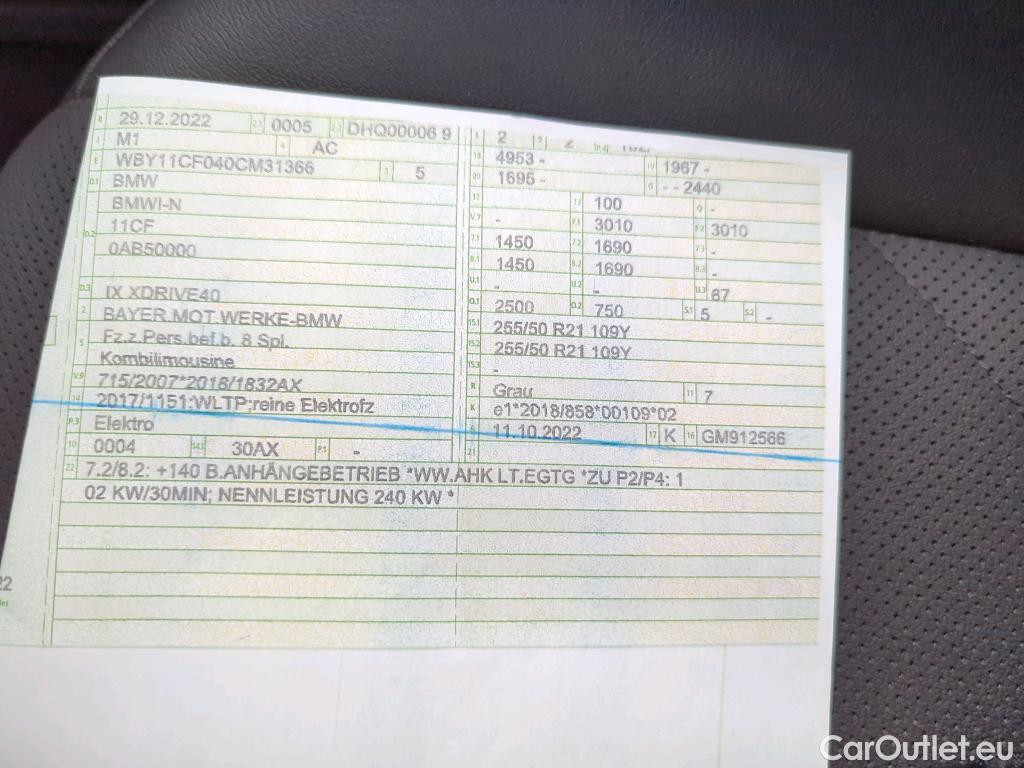 B 29.12.2022 2.1 0005 2.2 DHQ00006 9
J M1 4 AC
E WBY11CF040CM31366 3 5
D.1 BMW
BMWI-N
D.2 11CF
0AB50000
D.3 IX XDRIVE40
2 BAYER.MOT.WERKE-BMW
5 Fz.z.Pers.bef.b. 8 Spl.
Kombilimousine
V.9 715/2007*2018/1832AX
14 2017/1151;WLTP;reine Elektrofz
P.3 Elektro
10 0004 14.1 30AX P.1 -
22 7.2/8.2: +140 B.ANHÄNGEBETRIEB *WW.AHK LT.EGTG *ZU P2/P4: 1
02 KW/30MIN; NENNLEISTUNG 240 KW *
L 2 9 2
18 4953 - 19 1967 -
20 1695 - G - - 2440
12 13 100 Q -
V.7 - F.1 3010 F.2 3010
7.1 1450 7.2 1690 7.3 -
8.1 1450 8.2 1690 8.3 -
U.1 - U.2 - U.3 67
O.1 2500 O.2 750 S.1 5 S.2 -
15.1 255/50 R21 109Y
15.2 255/50 R21 109Y
15.3 -
R Grau 11 7
K e1*2018/858*00109*02
6 11.10.2022 17 K 16 GM912566
21
22
CarOutlet.eu